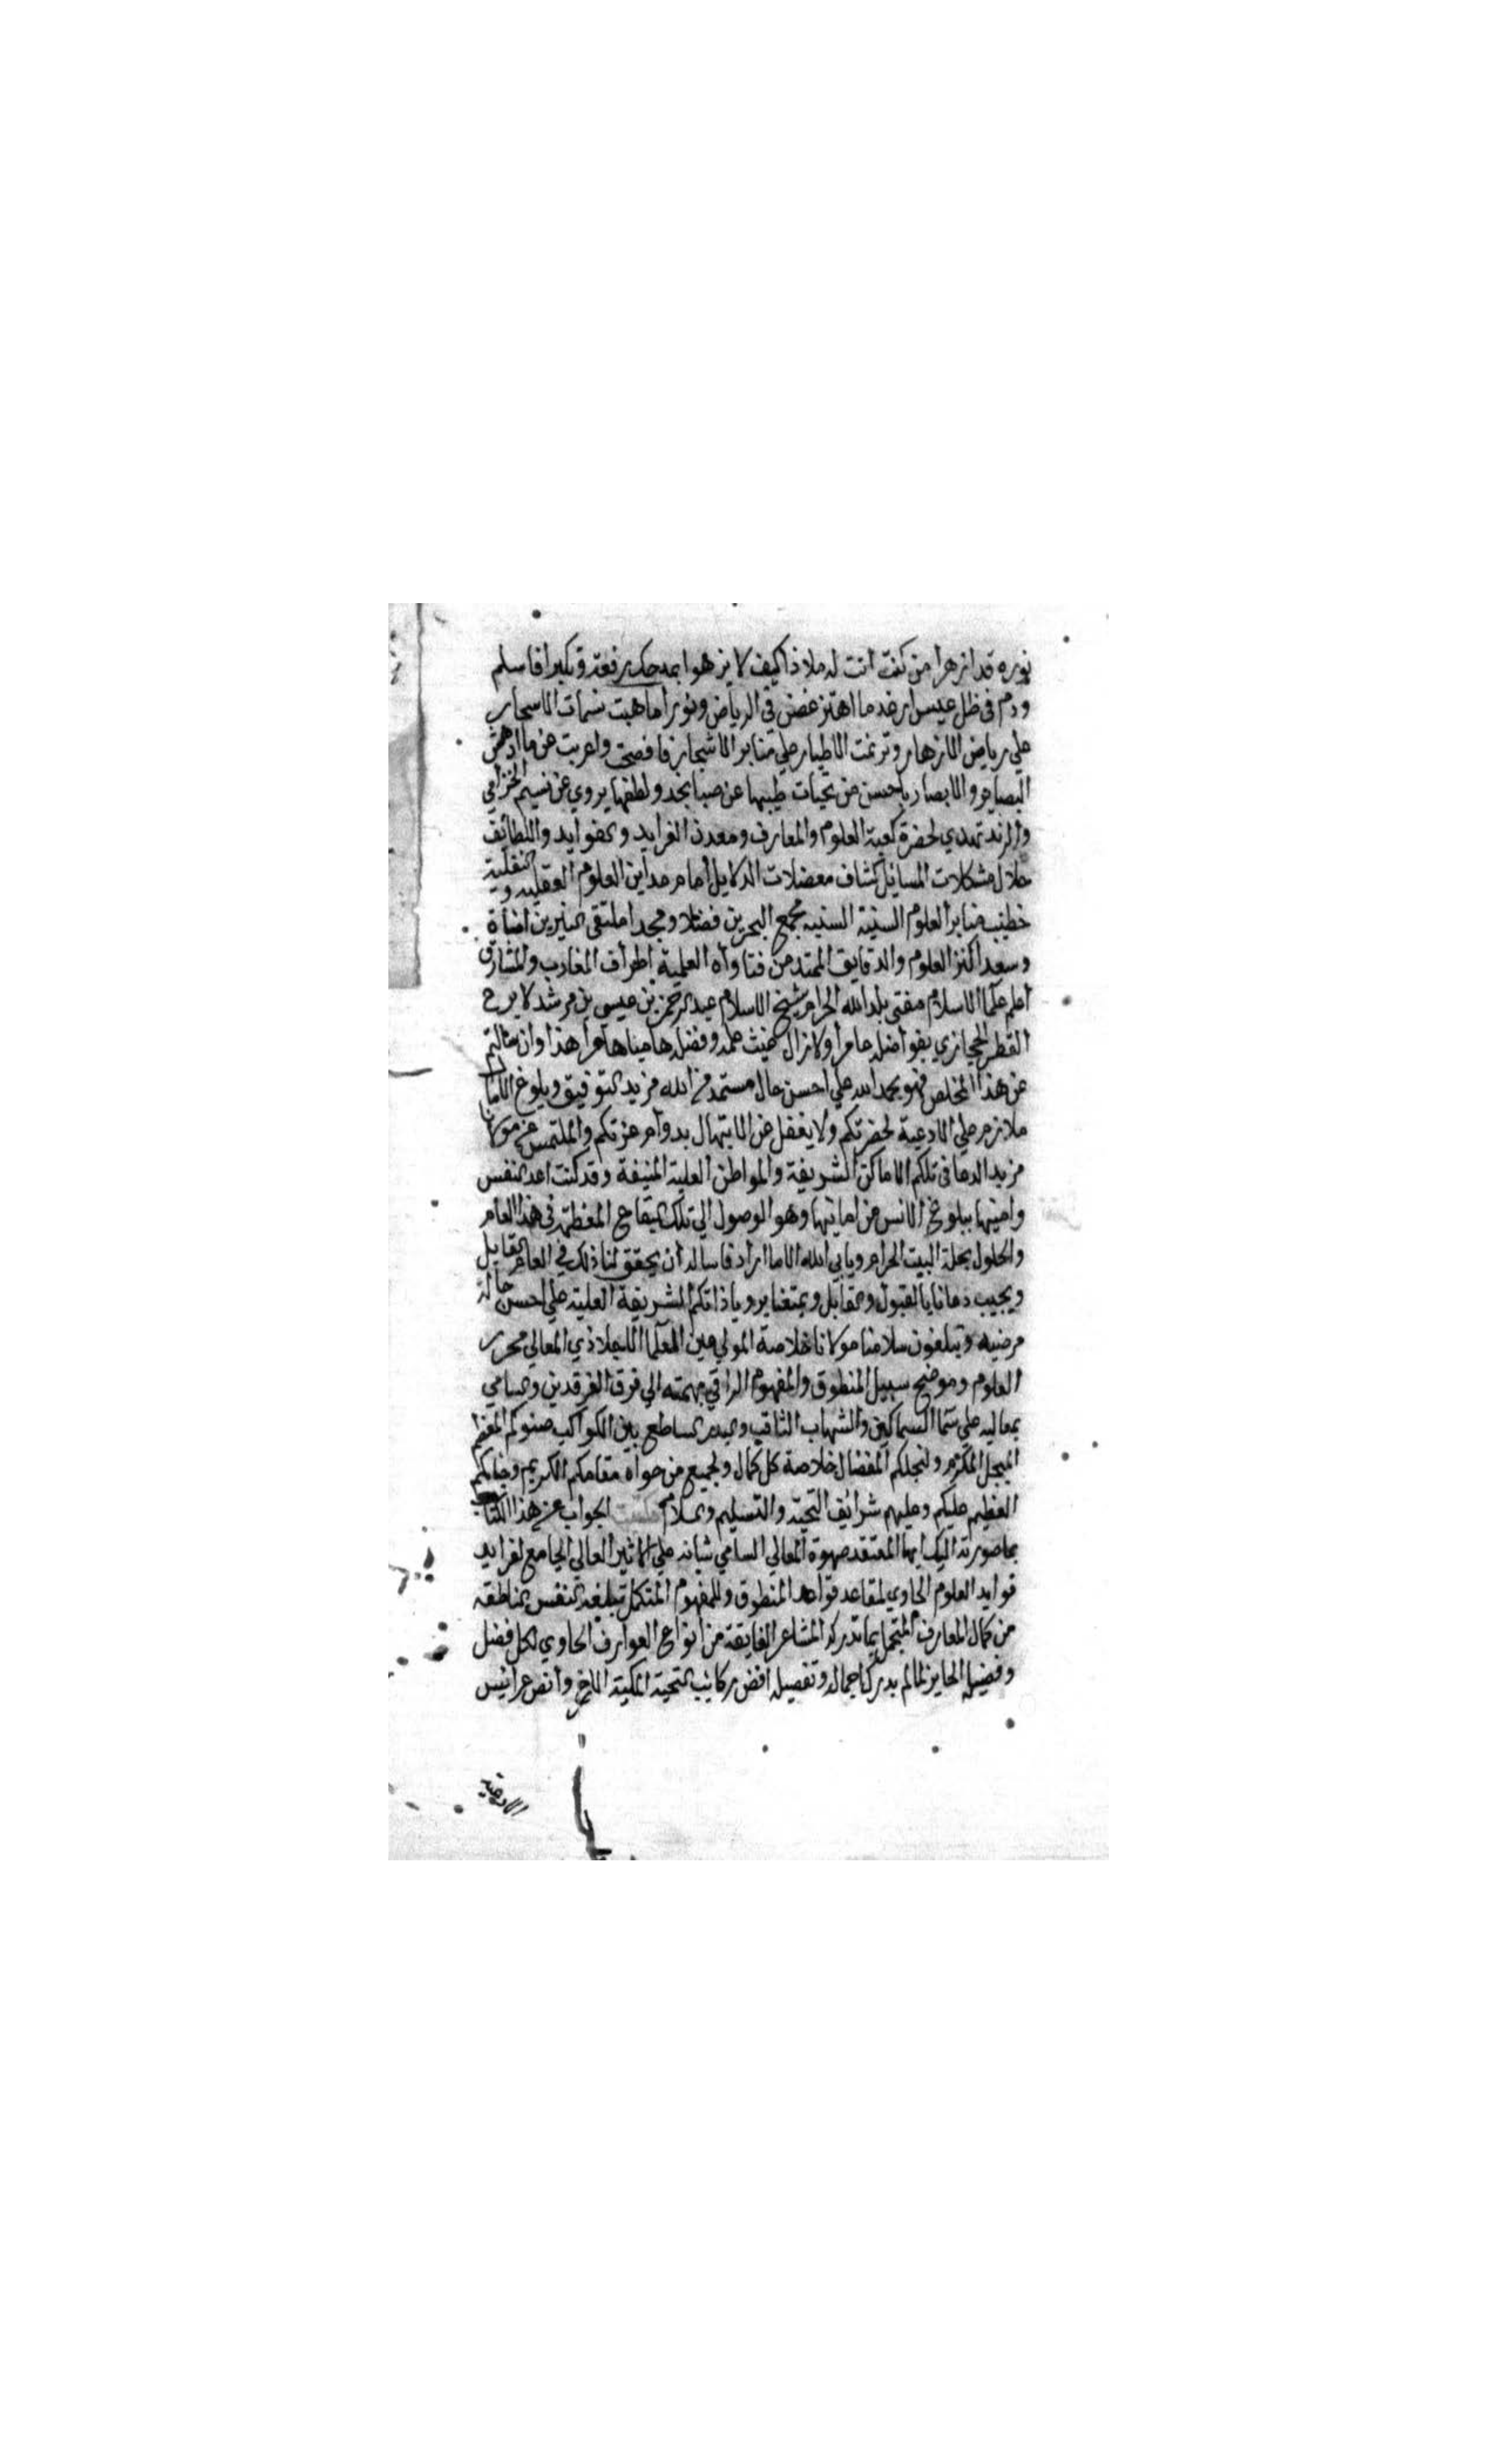 نوره قد ازهرا من كنت انت له ملاذا كيف لا يزهوا بمدحك رفعة وتكبرا فاسلم
ودم في ظل عيس ارغد ما اهتز غصن في الرياض ونورا ما هبت نسمات الاسحار
علي رياض الازهار وترنمت الاطيار علي منابر الاشجار فافصحت واعربت عن ما ادهش
البصاير والابصار باحسن من تحيات طيبها عن صبا نجد ولطفها يروي عن نسيم الخزامي
والرند تهدي لحضرة كعبة العلوم والمعارف ومعدن الفرايد والفوايد واللطائف
حلال مشكلات المسائل كشاف معضلات الدلايل امام مداين العلوم العقلية والنقلية
خطيب منابر العلوم السنية السنيه مجمع البحرين فضلا ومجدا ملتقى النيرين اضاة
وسعدا كنز العلوم والدقايق الممتد من فتاواه العلمية اطراف المغارب والمشارق
اعلم علما الاسلام مفتي بلد الله الحرام شيخ الاسلام عبد الرحمن بن عيسي بن مرشد لا برح
القطر الحجازي بفواضله عامرا ولا زال غيث علمه وفضله هامياها مرا هذا وان سالتم
عن هذا المخلص فهو بحمد الله علي احسن حال مستمد من الله مزيد التوفيق وبلوغ الامال
ملازم علي الادعية لحضرتكم ولا يغفل عن الابتهال بدوام عزتكم والملتمس من مولانا
مزيد الدعا في تلكم الاماكن الشريفة والمواطن العلية المنيفة وقد كنت اعد النفس
وامنيها ببلوغ الانس من امانيها وهو الوصول الي تلك البقاع المعظمة في هذا العام
والحلول بحلة البيت الحرام ويابي الله الا ما اراد فاساله ان يحقق لنا ذلك في العام القابل
ويجيب دعانا بالقبول والتقابل ويمتعنا برويا ذاتكم الشريفة العلية علي احسن حالة
مرضيه وتبلغون سلامنا مولانا خلاصة المولي عين العلما الاجلا ذي المعالي محرر
العلوم وموضح سبيل المنطوق والمفهوم الراقي بهمته الي فرق الفرقدين والسامي
بمعاليه علي سما السماكين والشهاب الثاقب والبدر الساطع بين الكواكب صنوكم المفخم
المبجل المكرم ولنجلكم المفضال خلاصة كل كمال ولجميع من حواه مقامكم الكريم وجنابكم
العظيم عليكم وعليهم شرائف التحية والتسليم والسلام فكتبت الجواب عن هذا الكتاب
بما صورته اليك ايها المعتقد صهوة المعالي السامي شانه علي الاثير العالي الجامع لفرايد
فوايد العلوم الحاوي لمقاعد قواعد المنطوق والمفهوم المتكمل تبلغه النفس الناطقة
من كمال المعارف المتجمل بما تدركه المشاعر الفايقة من انواع العوارف الحاوي لكل فضل
وفضيله الحايز لما لم يدرك اجماله وتفصيله افض ركائب التحية المكية الارج وانص عرائيس